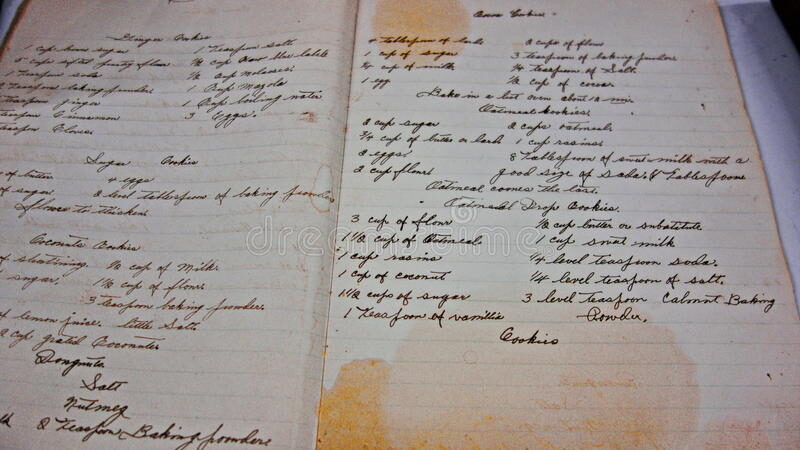 Ginger Cookies
1 cup sugar
1 Teaspoon Salt
5 cup flour
1/2 cup Karo blue lable
1 Teaspoon soda
1/2 cup molasses
Teaspoon baking powders
1 Cup Mazola
Teaspoon ginger
1 Cup boiling water
Teaspoon Cinnamon
3 Eggs.
Teaspoon Cloves
Sugar Cookie
of butter
4 eggs
of sugar
2 Tablespoon of baking powder
flower to thicken
Coconute Cookies
of shortining
1/2 cup of Milk.
sugar.
1 1/2 cup of flour.
3 teaspoon baking powder.
of lemon juice. little Salt
2 cup grated Coconuter
Dougnuts
Salt
Nutmeg
2 Teaspoon Baking powders
Cookies
4 tablespoon of lard
2 cups of flour
1 cup of sugar
3 teaspoon of baking powders
3/4 cup of milk
1/4 teaspoon of Salt.
1 egg
1/2 cup of cocoa.
Bake in a hot oven about
Oatmeal Cookies.
2 cup sugar
2 cups oatmeal
3/4 cup of butter or lard
1 cup rasines
2 eggs
8 Tablespoon of milk with a
2 cup flour
good size of Soda. 8 Tablespoons
Oatmeal comes the last.
Oatmeal Drop Cookies.
3 cup of flour
1/2 cup butter or substitute
1 1/2 cup of Oatmeal
1 cup milk
1 cup rasins
1/4 level teaspoon soda.
1 cup of coconut
1/4 level teaspoon of salt.
1 1/2 cups of sugar
3 level teaspoon Calmnt Baking
1 Teaspoon of vanillie
Powder.
Cookies
dreamstime